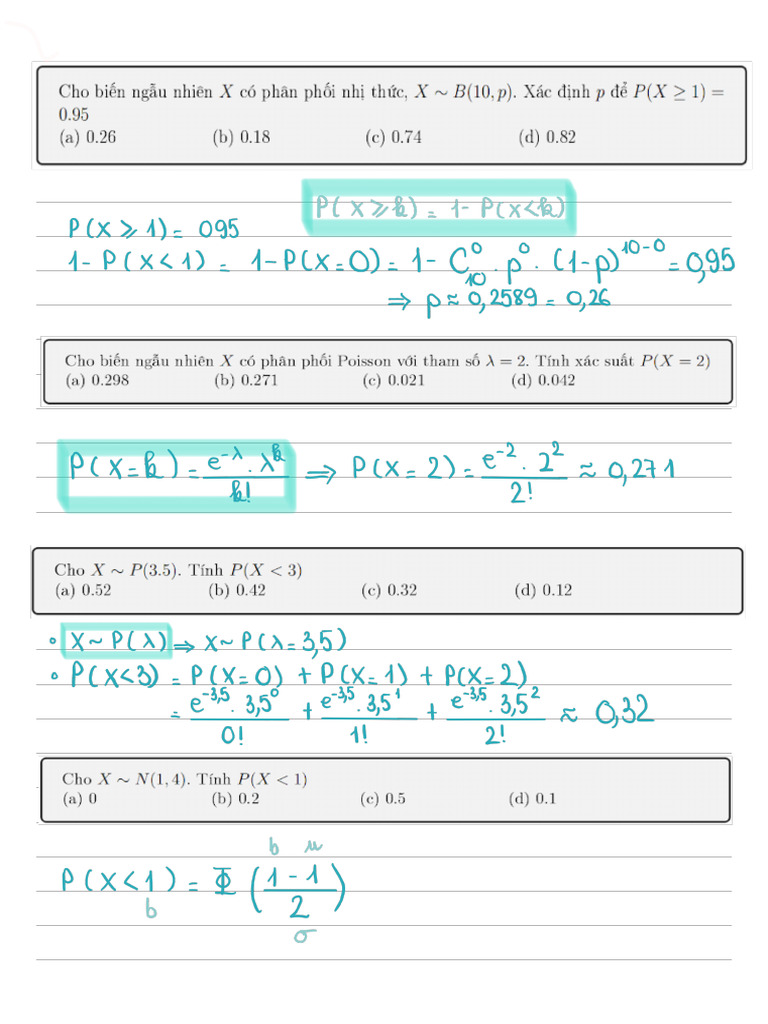 Cho biến ngẫu nhiên X có phân phối nhị thức, X ∼ B(10, p). Xác định p để P(X ≥ 1) =
0.95
(a) 0.26 (b) 0.18 (c) 0.74 (d) 0.82
P(X ≥ k) = 1 - P(X < k)
P(X ≥ 1) = 095
1 - P(X < 1) = 1 - P(X = 0) = 1 - C₁₀⁰ . p⁰ . (1 - p)¹⁰⁻⁰ = 0,95
⇒ p ≈ 0,2589 = 0,26
Cho biến ngẫu nhiên X có phân phối Poisson với tham số λ = 2. Tính xác suất P(X = 2)
(a) 0.298 (b) 0.271 (c) 0.021 (d) 0.042
P(X = k) = e^-λ . λ^k / k! ⇒ P(X = 2) = e^-2 . 2^2 / 2! ≈ 0,271
Cho X ∼ P(3.5). Tính P(X < 3)
(a) 0.52 (b) 0.42 (c) 0.32 (d) 0.12
• X ~ P(λ) ⇒ X ~ P(λ = 3,5)
• P(X < 3) = P(X = 0) + P(X = 1) + P(X = 2)
= e^-3,5 . 3,5^0 / 0! + e^-3,5 . 3,5^1 / 1! + e^-3,5 . 3,5^2 / 2! ≈ 0,32
Cho X ∼ N(1, 4). Tính P(X < 1)
(a) 0 (b) 0.2 (c) 0.5 (d) 0.1
b μ
P(X < 1) = Φ((1 - 1) / 2)
b
σ